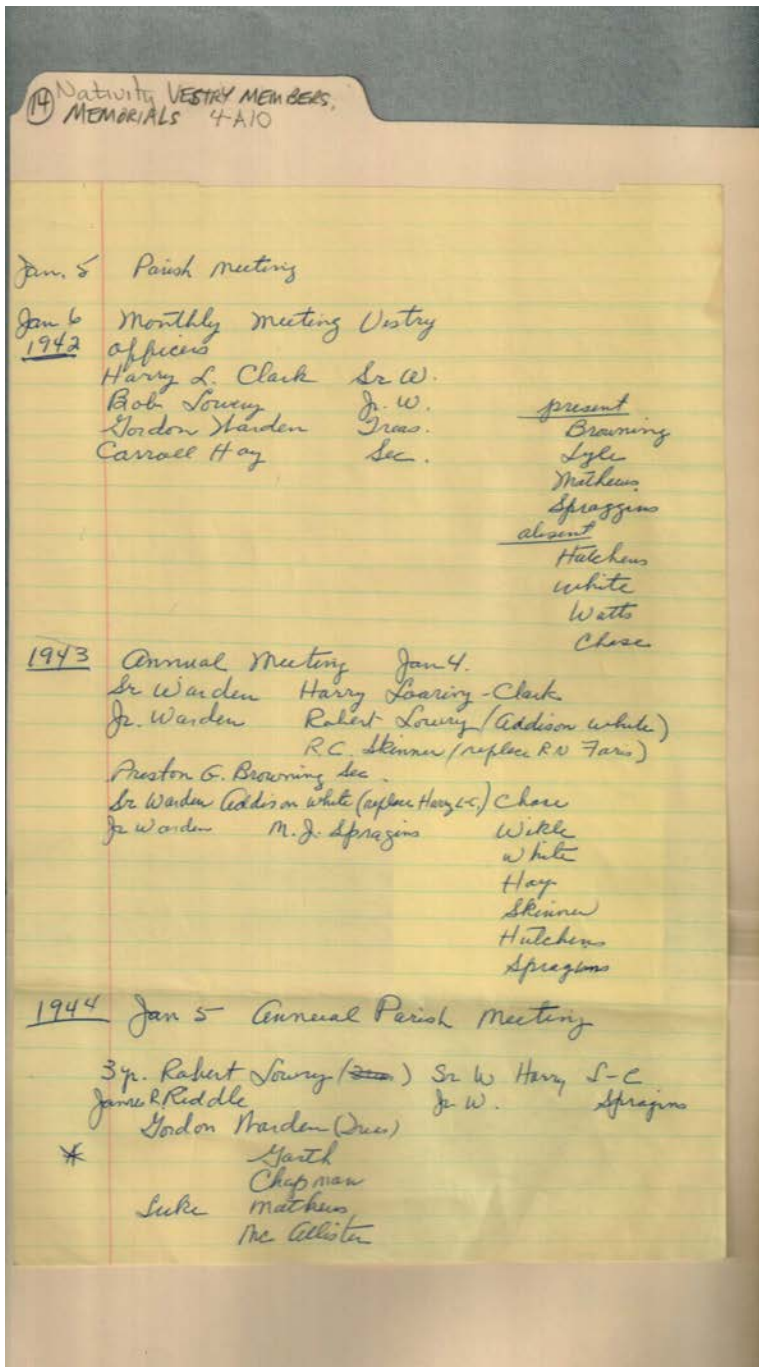 14 Nativity VESTRY MEMBERS,
MEMORIALS 4-A10
Jan. 5 Parish meeting
Jan 6 Monthly Meeting Vestry
1942 officers
Harry L. Clark Sr W.
Bob Lowery Jr. W.
Gordon Warden Treas.
Carroll Hay Sec.
present
Browning
Lyle
Mathews
Spraggins
absent
Hutchens
White
Watts
Chase
1943 Annual Meeting Jan 4.
Sr Warden Harry Loaring-Clark
Jr. Warden Robert Lowry (Addison White)
R.C. Skinner (replace R N Faris)
Preston G. Browning Sec.
Sr Warden Addison White (replace Harry L-C.) Chase
Jr Warden M. J. Spragins Wikle
White
Hay
Skinner
Hutchens
Spragins
1944 Jan 5 Annual Parish Meeting
3 yr. Robert Lowry ( ) Sr W Harry L-C
James R Riddle Jr W. Spragins
Gordon Warden (Treas)
* Garth
Chapman
Luke Mathews
Mc Allister